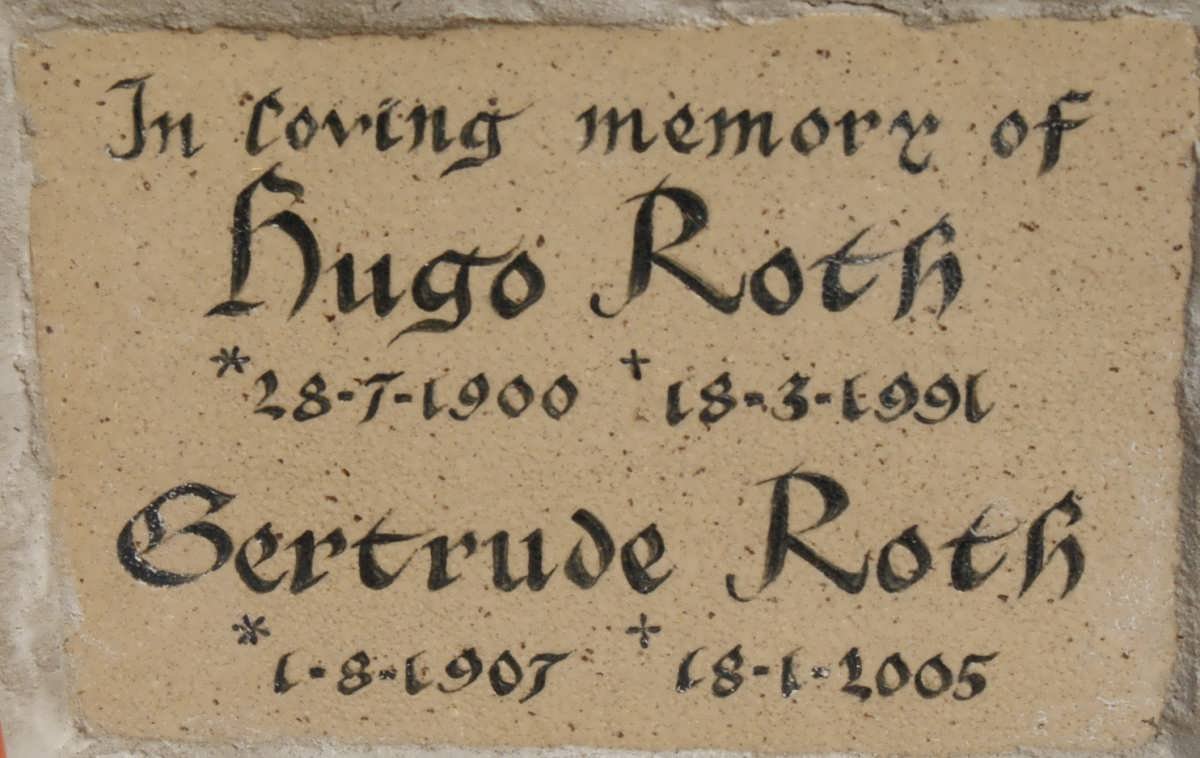 In loving memory of
Hugo Roth
*28-7-1900 +18-3-1991
Gertrude Roth
*1-8-1907 +18-1-2005